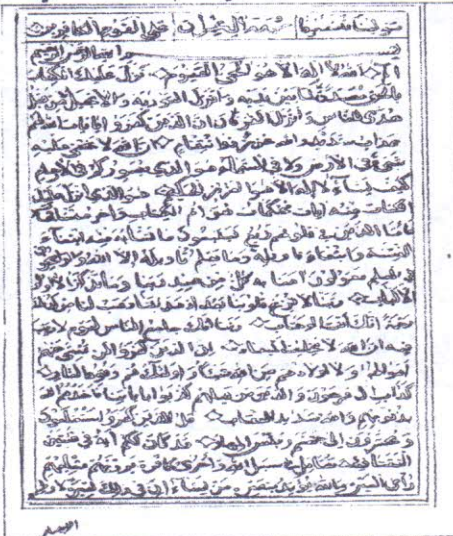 على القوم الكافرين سورة ال عمران مولينا فانصرنا
بسم الله الرحمن الرحيم
الم الله لا اله الا هو الحي القيوم نزل عليك الكتاب
بالحق مصدقا لما بين يديه وانزل التورية والانجيل من قبل
هدى للناس وانزل الفرقان ان الذين كفروا بايات الله لهم
عذاب شديد والله عزيز ذو انتقام ان الله لا يخفى عليه
شيء في الارض ولا في السماء هو الذي يصوركم في الارحام
كيف يشاء لا اله الا هو العزيز الحكيم هو الذي انزل عليك
الكتاب منه ايات محكمات هن ام الكتاب واخر متشابهات
فاما الذين في قلوبهم زيغ فيتبعون ما تشابه منه ابتغاء
الفتنة وابتغاء تاويله وما يعلم تاويله الا الله والراسخون
في العلم يقولون امنا به كل من عند ربنا وما يذكر الا اولوا
الالباب ربنا لا تزغ قلوبنا بعد اذ هديتنا وهب لنا من لدنك
رحمة انك انت الوهاب ربنا انك جامع الناس ليوم لا ريب
فيه ان الله لا يخلف الميعاد ان الذين كفروا لن تغني عنهم
اموالهم ولا اولادهم من الله شيئا واولئك هم وقود النار
كداب ال فرعون والذين من قبلهم كذبوا باياتنا فاخذهم الله
بذنوبهم والله شديد العقاب قل للذين كفروا ستغلبون
وتحشرون الى جهنم وبئس المهاد قد كان لكم اية في فئتين
التقتا فئة تقاتل في سبيل الله واخرى كافرة يرونهم مثليهم
راي العين والله يؤيد بنصره من يشاء ان في ذلك لعبرة لاولي
الابصار